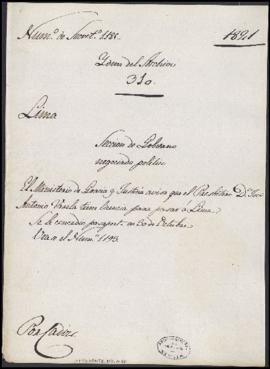 Num.º de Secret.ª 1181. 1821
Idem del Archivo
310.
Lima
Seccion de Gobierno
negociado politico
El Ministerio de Gracia y Justicia avisa que el Presbitero Dⁿ José
Antonio Varela tiene licencia para pasar á Lima
Se le concedio pasaporte en 30 de Octubre.
Vea el Num.º 1193.
Por Cadiz